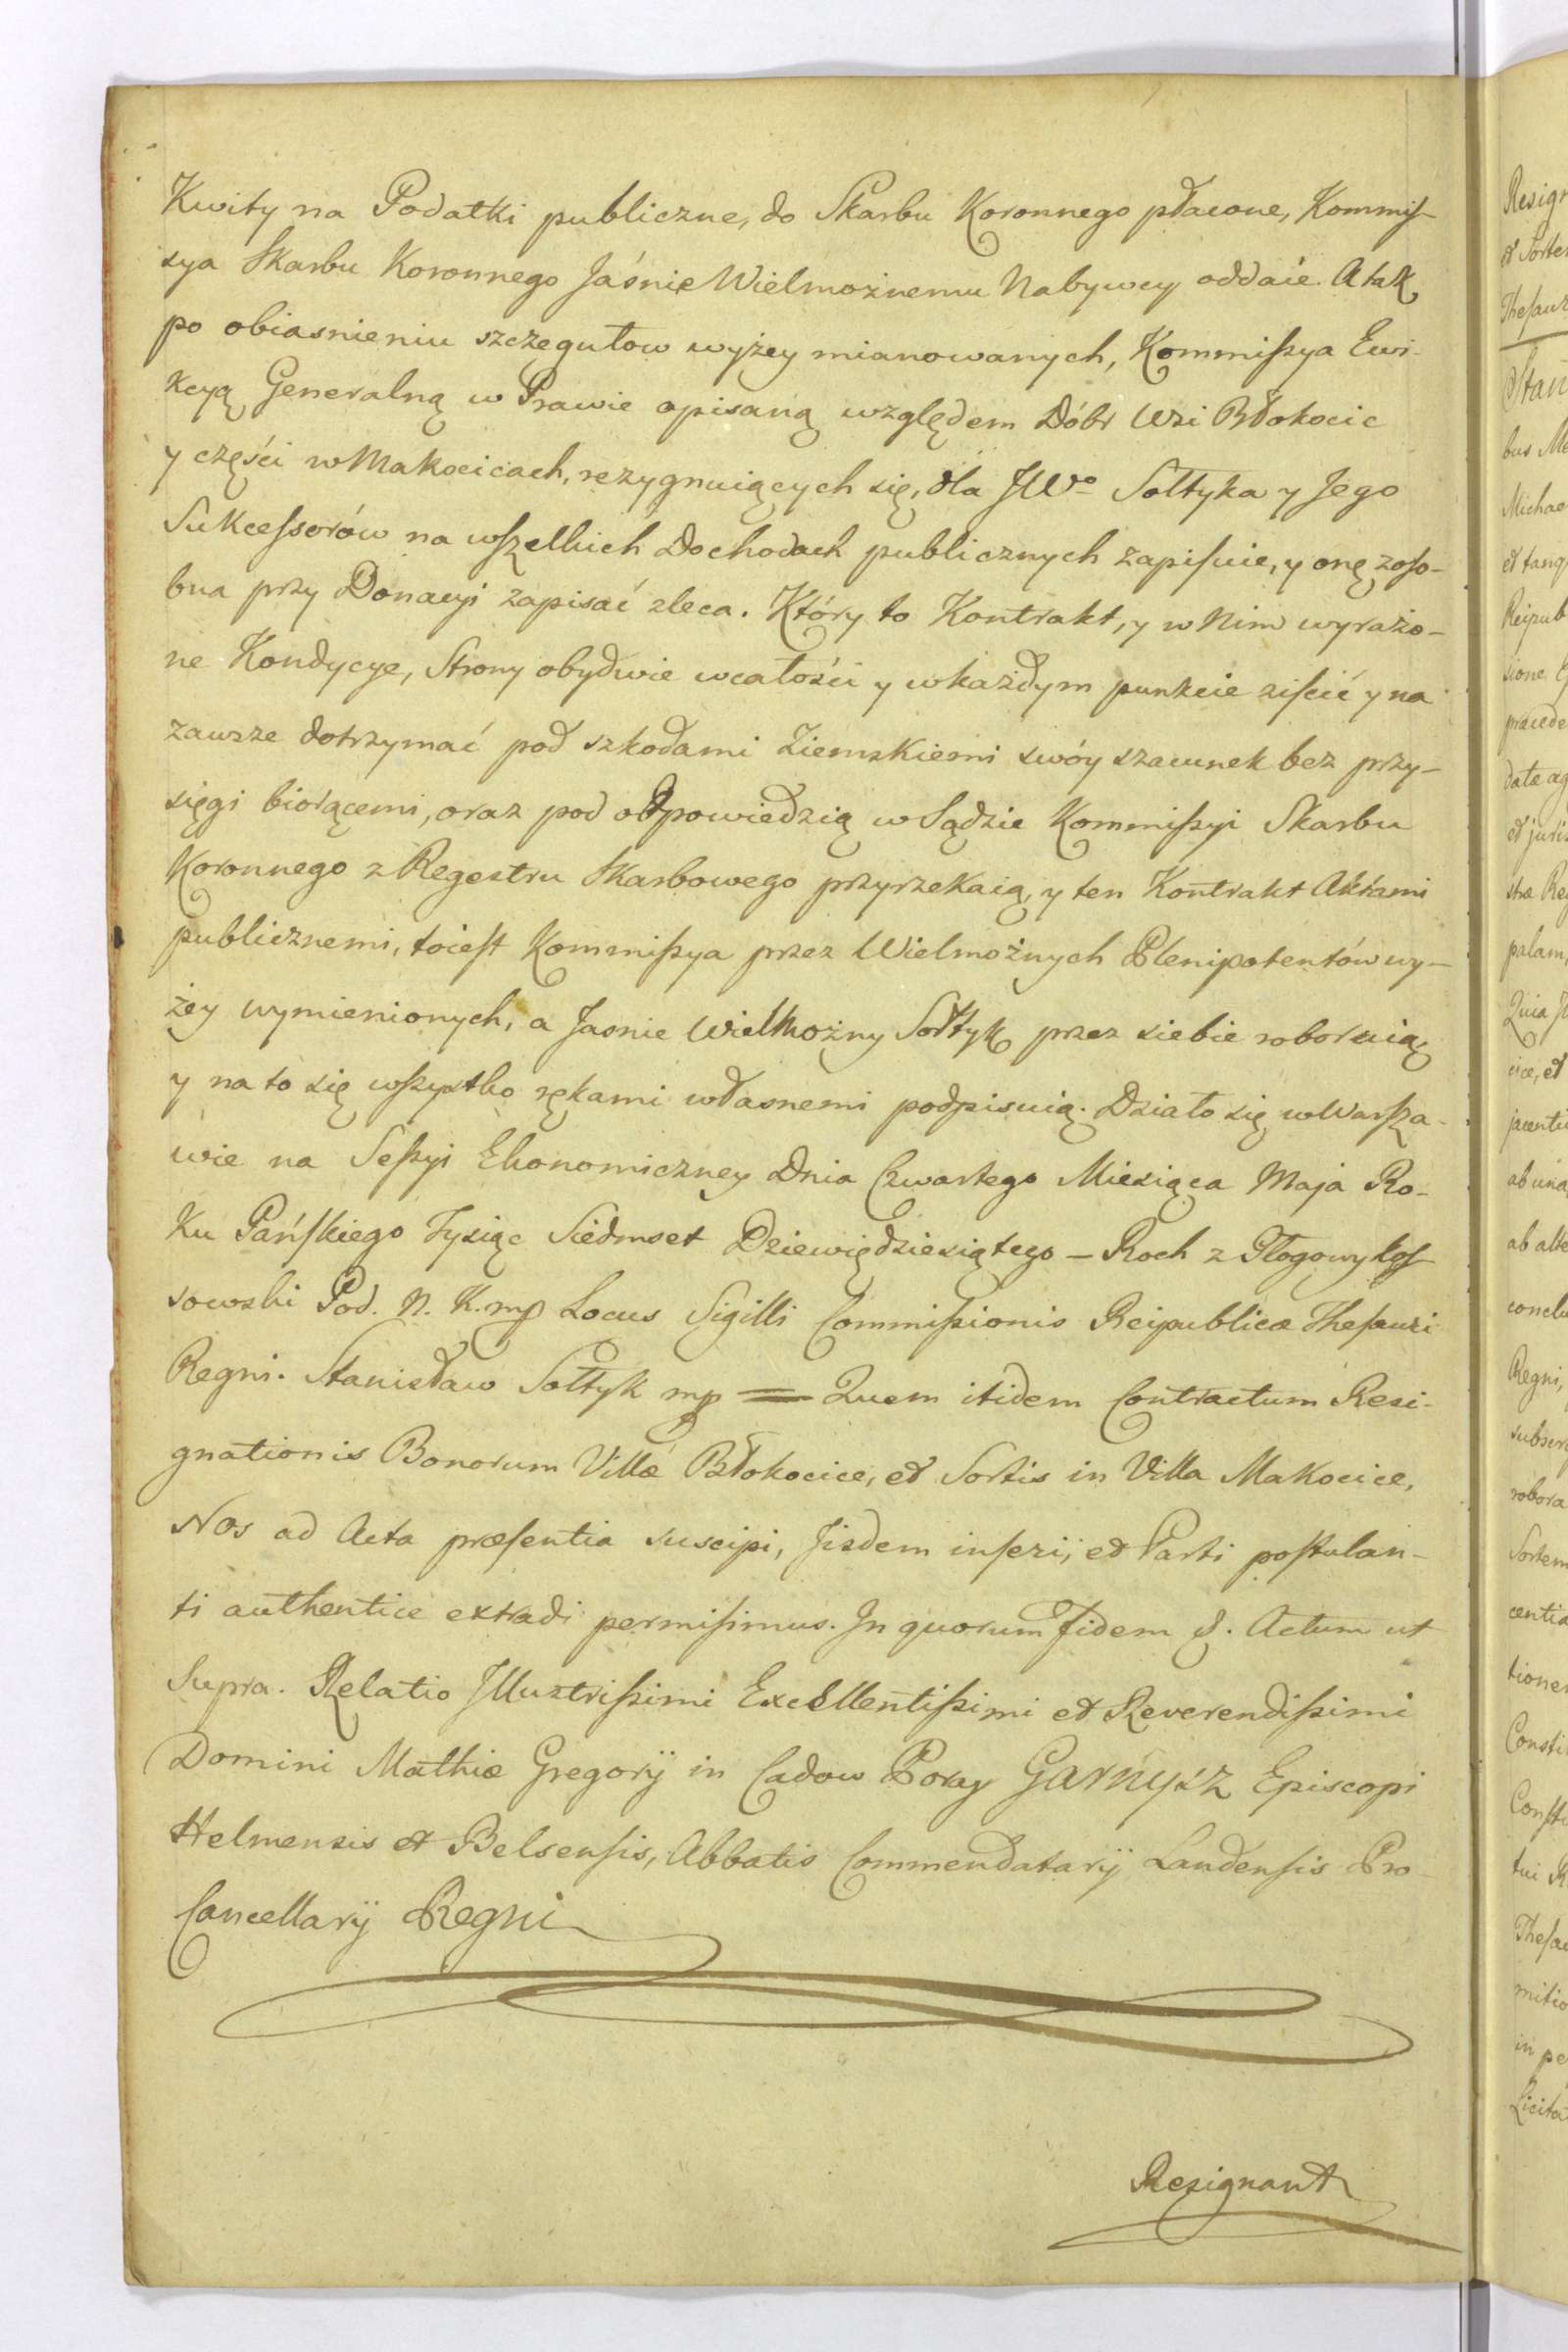 Kwity na Podatki publiczne, do Skarbu Koronnego płacone, Kommiſ-
sya Skarbu Koronnego Jaśnie Wielmożnemu Nabywcy oddaie. A tak
po obiasnieniu szczegułow wyżey mianowanych, Kommiſsya Ewi-
kcyą Generalną w Prawie opisaną względem Dóbr Wsi Błokocic
y części w Makocicach, rezygnuiących się, dla JWo Sołtyka y Jego
Sukceſsorów na wſzelkich Dochodach publicznych zapiſuie, y onę zoſo-
bna przy Donacyi zapisać zleca. Który to Kontrakt, y w Nim wyrażo-
ne Kondycye, Strony obydwie wcałości y wkażdym punkcie ziſcić y na
zawsze dotrzymać pod szkodami Ziemskiemi swóy szacunek bez przy-
sięgi biorącemi, oraz pod odpowiedzią w Sądzie Kommiſsyi Skarbu
Koronnego z Regestru Skarbowego przyrzekaią, y ten Kontrakt Aktami
publicznemi, toieſt Kommiſsya przez Wielmożnych Plenipotentów wy-
żey wymienionych, a Jasnie Wielmożny Sołtyk przez siebie roboruią,
y na to się wſzystko rękami własnemi podpisuią. Działo się w Warſza-
wie na Seſsyi Ekonomiczney Dnia Czwartego Miesiąca Maja Ro-
ku Pańſkiego Tysiąc Siedmset Dziewiędziesiątego – Roch z Głogowy Koſ-
sowski Pod. N. K. mp Locus Sigilli Commiſsionis Reipublicæ Theſauri
Regni. Stanisław Sołtyk mp = Quem itidem Contractum Resi-
gnationis Bonorum Villæ Błokocice, et Sortis in Villa Makocice,
Nos ad Acta præſentia suscipi, Jisdem inſeri, et Parti poſtulan-
ti authentice extradi permiſimus. In quorum Fidem &. Actum ut
Supra. Relatio Jllustriſsimi Excellentiſsimi et Reverendiſsimi
Domini Mathiæ Gregorij in Cadow Poray Garnysz Episcopi
Helmensis et Belsenſis, Abbatis Commendatarij Landenſis Pro-
Cancellarij Regni
Resignant